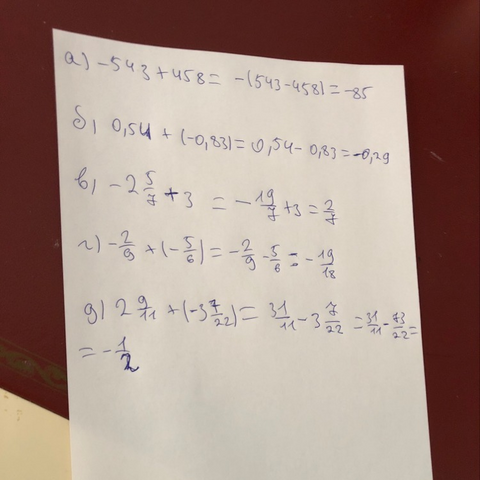 а) -543+458= -(543-458)=-85
б) 0,54 + (-0,83)=0,54-0,83=-0,29
в) -2 5/7 + 3 = -19/7+3=2/7
г) -2/9 + (-5/6)=-2/9-5/6=-19/18
д) 2 9/11 + (-3 7/22)= 31/11-3 7/22 =31/11-73/22=
= -1/2